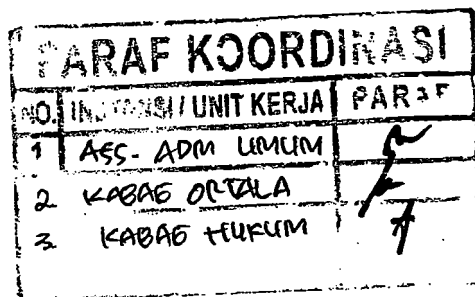 PARAF KOORDINASI
NO. INSTANSI / UNIT KERJA PARAF
1 ASS. ADM UMUM
2. KABAG ORTALA
3. KABAG HUKUM